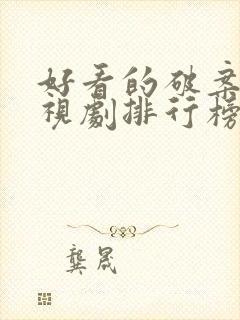 好看的破案
視劇排行榜
龔晟